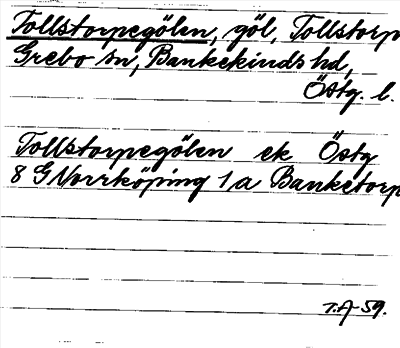 Tollstorpegölen, göl, Tollstorp
Grebo sn, Bankekinds hd,
Östg. l.
Tollstorpegölen ek Östg
8 G Norrköping 1 a Banketorp
T.A-59.